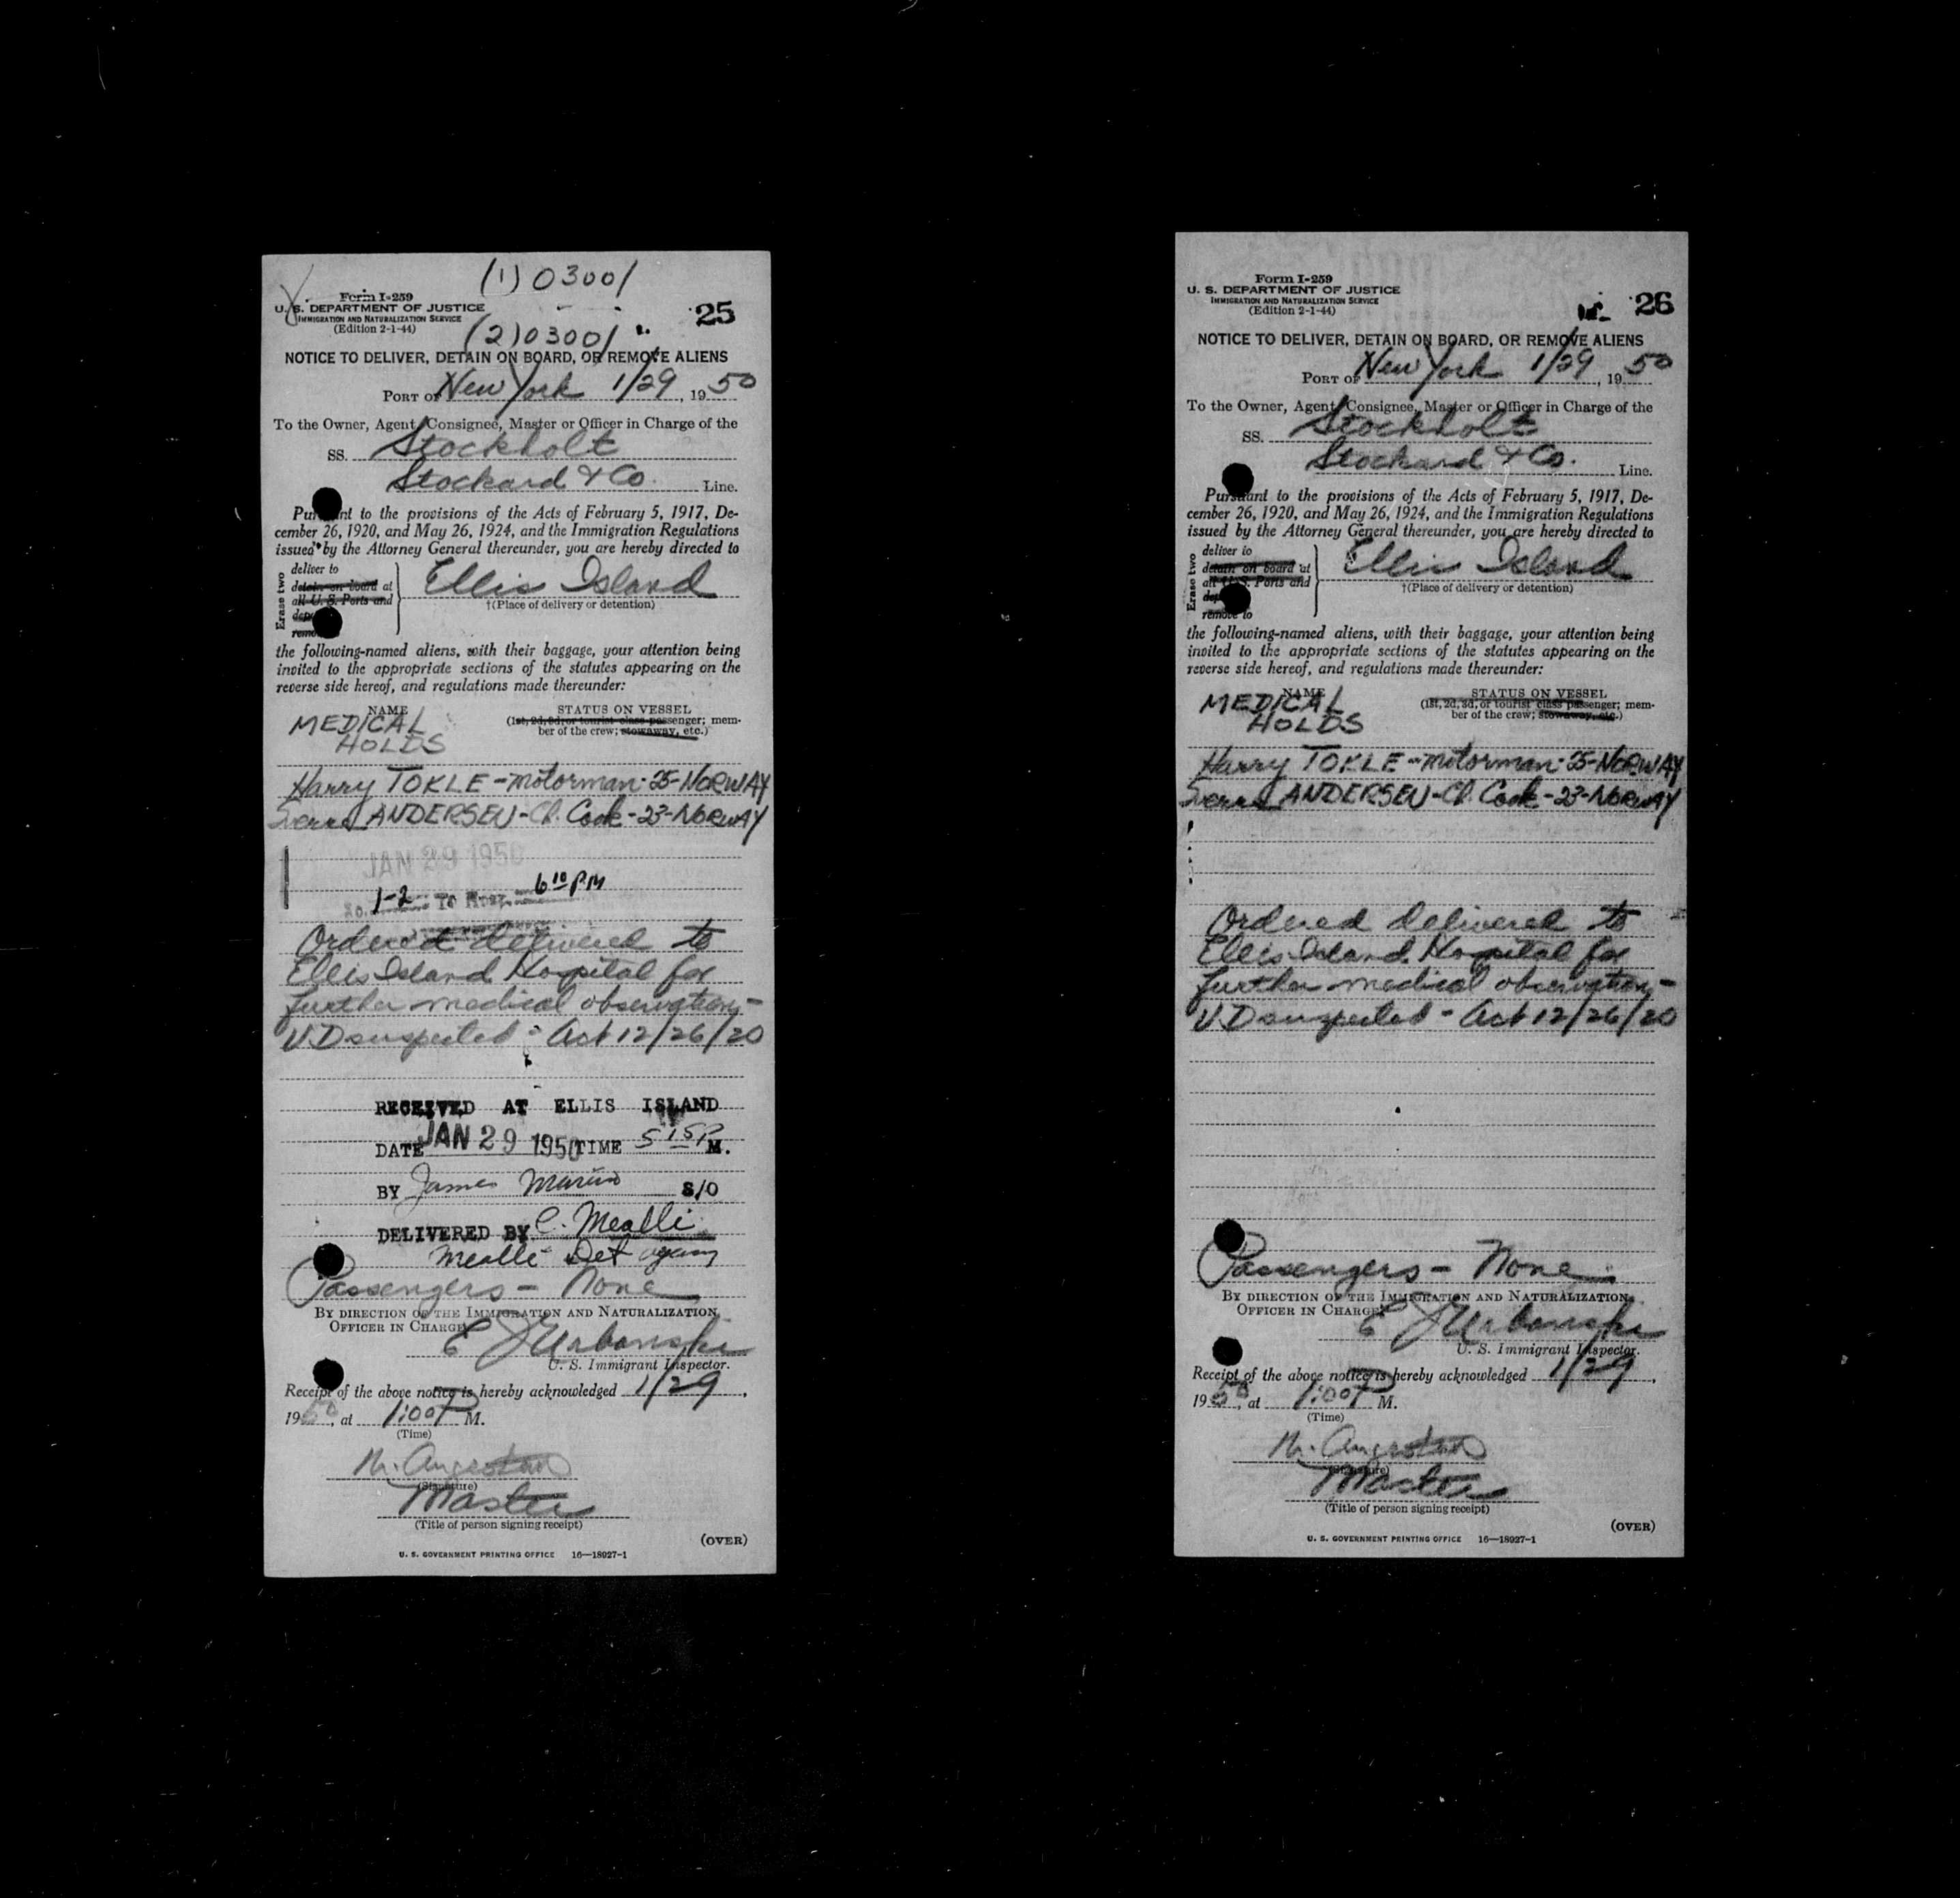 (1) 03001
Form I-259
U. S. DEPARTMENT OF JUSTICE
IMMIGRATION AND NATURALIZATION SERVICE
(Edition 2-1-44)
25
(2) 03001
NOTICE TO DELIVER, DETAIN ON BOARD, OR REMOVE ALIENS
PORT OF New York 1/29, 1950
To the Owner, Agent, Consignee, Master or Officer in Charge of the
SS. Stockholt
Stockard & Co. Line.
Pursuant to the provisions of the Acts of February 5, 1917, De-
cember 26, 1920, and May 26, 1924, and the Immigration Regulations
issued by the Attorney General thereunder, you are hereby directed to
Erase two
deliver to
detain on board at
all U. S. Ports and
remove
Ellis Island
†(Place of delivery or detention)
the following-named aliens, with their baggage, your attention being
invited to the appropriate sections of the statutes appearing on the
reverse side hereof, and regulations made thereunder:
NAME STATUS ON VESSEL
(1st, 2d, 3d, or tourist class passenger; mem-
ber of the crew; stowaway, etc.)
MEDICAL
HOLDS
Harry TOKLE - Motorman - 25 - NORWAY
ANDERSEN - Ch. Cook - 23 - NORWAY
JAN 29 1950
1-2 To Hosp. 6 10 PM
Ordered delivered to
Ellis Island Hospital for
further medical observation -
V.D suspected - Act 12/26/20
RECEIVED AT ELLIS ISLAND
DATE JAN 29 1950 TIME 5 15 P M.
BY James S/O
DELIVERED BY C. Mealli
Mealli Det agency
Passengers - None
BY DIRECTION OF THE IMMIGRATION AND NATURALIZATION
OFFICER IN CHARGE
E J Urbanski
U. S. Immigrant Inspector.
Receipt of the above notice is hereby acknowledged 1/29,
1950, at 1:00 P M.
(Time)
(Signature)
Master
(Title of person signing receipt)
(OVER)
U. S. GOVERNMENT PRINTING OFFICE 16—18927-1
Form I-259
U. S. DEPARTMENT OF JUSTICE
IMMIGRATION AND NATURALIZATION SERVICE
(Edition 2-1-44)
26
NOTICE TO DELIVER, DETAIN ON BOARD, OR REMOVE ALIENS
PORT OF New York 1/29, 1950
To the Owner, Agent, Consignee, Master or Officer in Charge of the
SS. Stockholt
Stockard & Co. Line.
Pursuant to the provisions of the Acts of February 5, 1917, De-
cember 26, 1920, and May 26, 1924, and the Immigration Regulations
issued by the Attorney General thereunder, you are hereby directed to
Erase two
deliver to
detain on board at
all U. S. Ports and
remove to
Ellis Island
†(Place of delivery or detention)
the following-named aliens, with their baggage, your attention being
invited to the appropriate sections of the statutes appearing on the
reverse side hereof, and regulations made thereunder:
NAME STATUS ON VESSEL
(1st, 2d, 3d, or tourist class passenger; mem-
ber of the crew; stowaway, etc.)
MEDICAL
HOLDS
Harry TOKLE - Motorman - 25 - NORWAY
ANDERSEN - Ch. Cook - 23 - NORWAY
Ordered delivered to
Ellis Island Hospital for
further medical observation -
V.D suspected - Act 12/26/20
Passengers - None
BY DIRECTION OF THE IMMIGRATION AND NATURALIZATION
OFFICER IN CHARGE
E J Urbanski
U. S. Immigrant Inspector.
Receipt of the above notice is hereby acknowledged 1/29,
1950, at 1:00 P M.
(Time)
(Signature)
Master
(Title of person signing receipt)
(OVER)
U. S. GOVERNMENT PRINTING OFFICE 16—18927-1